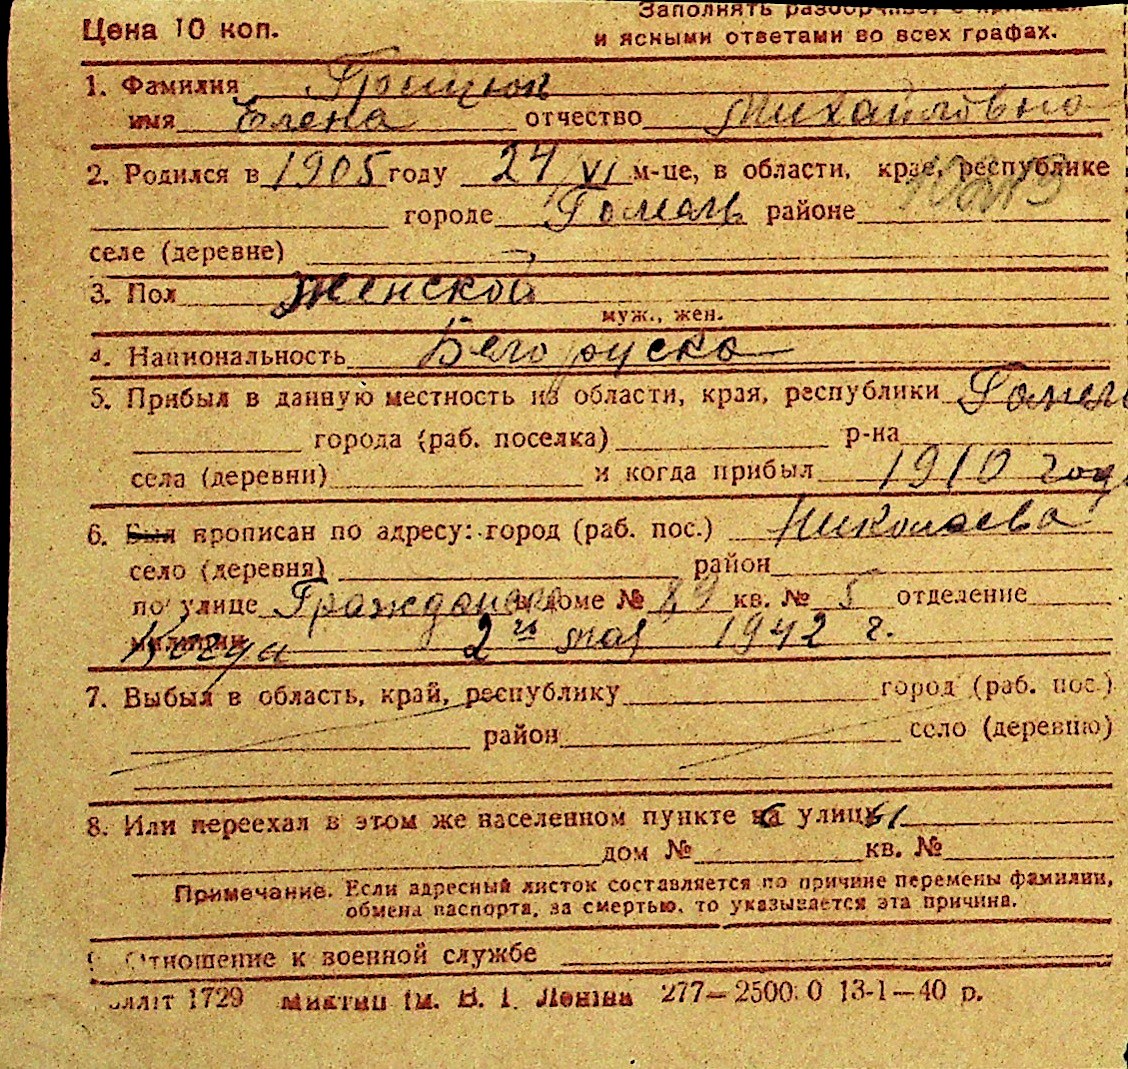 Цена 10 коп.
Заполнять разборчиво с
и ясными ответами во всех графах.
1. Фамилия Грицюк
имя Елена отчество Михайловно
2. Родился в 1905 году 24/VI м-це, в области, крае, республике
городе Гомель районе
селе (деревне)
3. Пол Женской
муж., жен.
4. Национальность Белоруско
5. Прибыл в данную местность из области, края, республики Гомель
города (раб. поселка) р-на
села (деревни) и когда прибыл 1910 году
6. Был прописан по адресу: город (раб. пос.) Николаева
село (деревня) район
по улице Гражданско в доме № 89 кв. № 5 отделение
милиции Когда 2го мая 1942 г.
7. Выбыл в область, край, республику город (раб. пос.)
район село (деревню)
8. Или переехал в этом же населенном пункте с улицы
дом № кв. №
Примечание. Если адресный листок составляется по причине перемены фамилии,
обмена паспорта, за смертью, то указывается эта причина.
Отношение к военной службе
1729 ім. В. І. Леніна 277—2500.0 13-1—40 р.